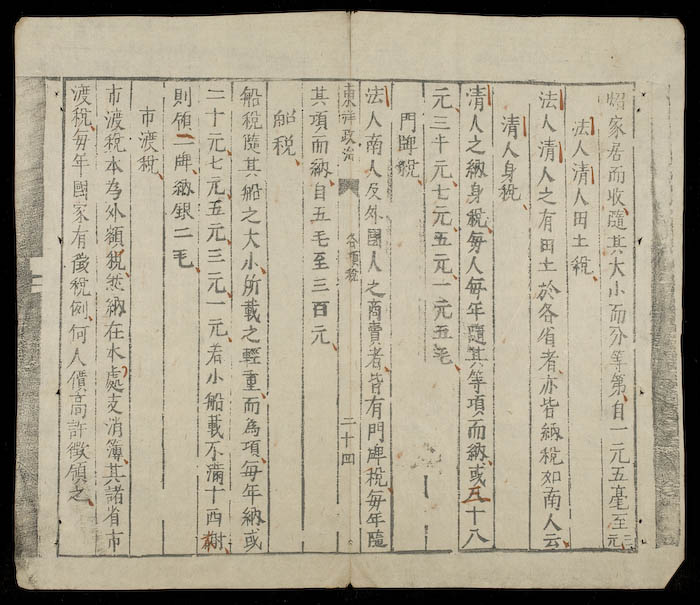 炤家居而收隨其大小而分等第自一元五毫至三元
法人清人田土稅
法人清人之有田土於各省者亦皆納稅如南人云
清人身稅
清人之納身稅每人每年隨其等項而納或五十八
元三十元七元五元一元五毛
門牌稅
法人南人及外國人之商賣者皆有門牌稅每年隨
東洋政治 各項稅 二十四
其項而納自五毛至三百元
船稅
船稅隨其船之大小所載之輕重而為項每年納或
二十元七元五元三元一元若小船載不滿十西樹
則領一牌納銀二毛
市渡稅
市渡稅本為外額稅玆納在本處支消簿其諸省市
渡稅每年國家有徵稅例何人價高許徵領之